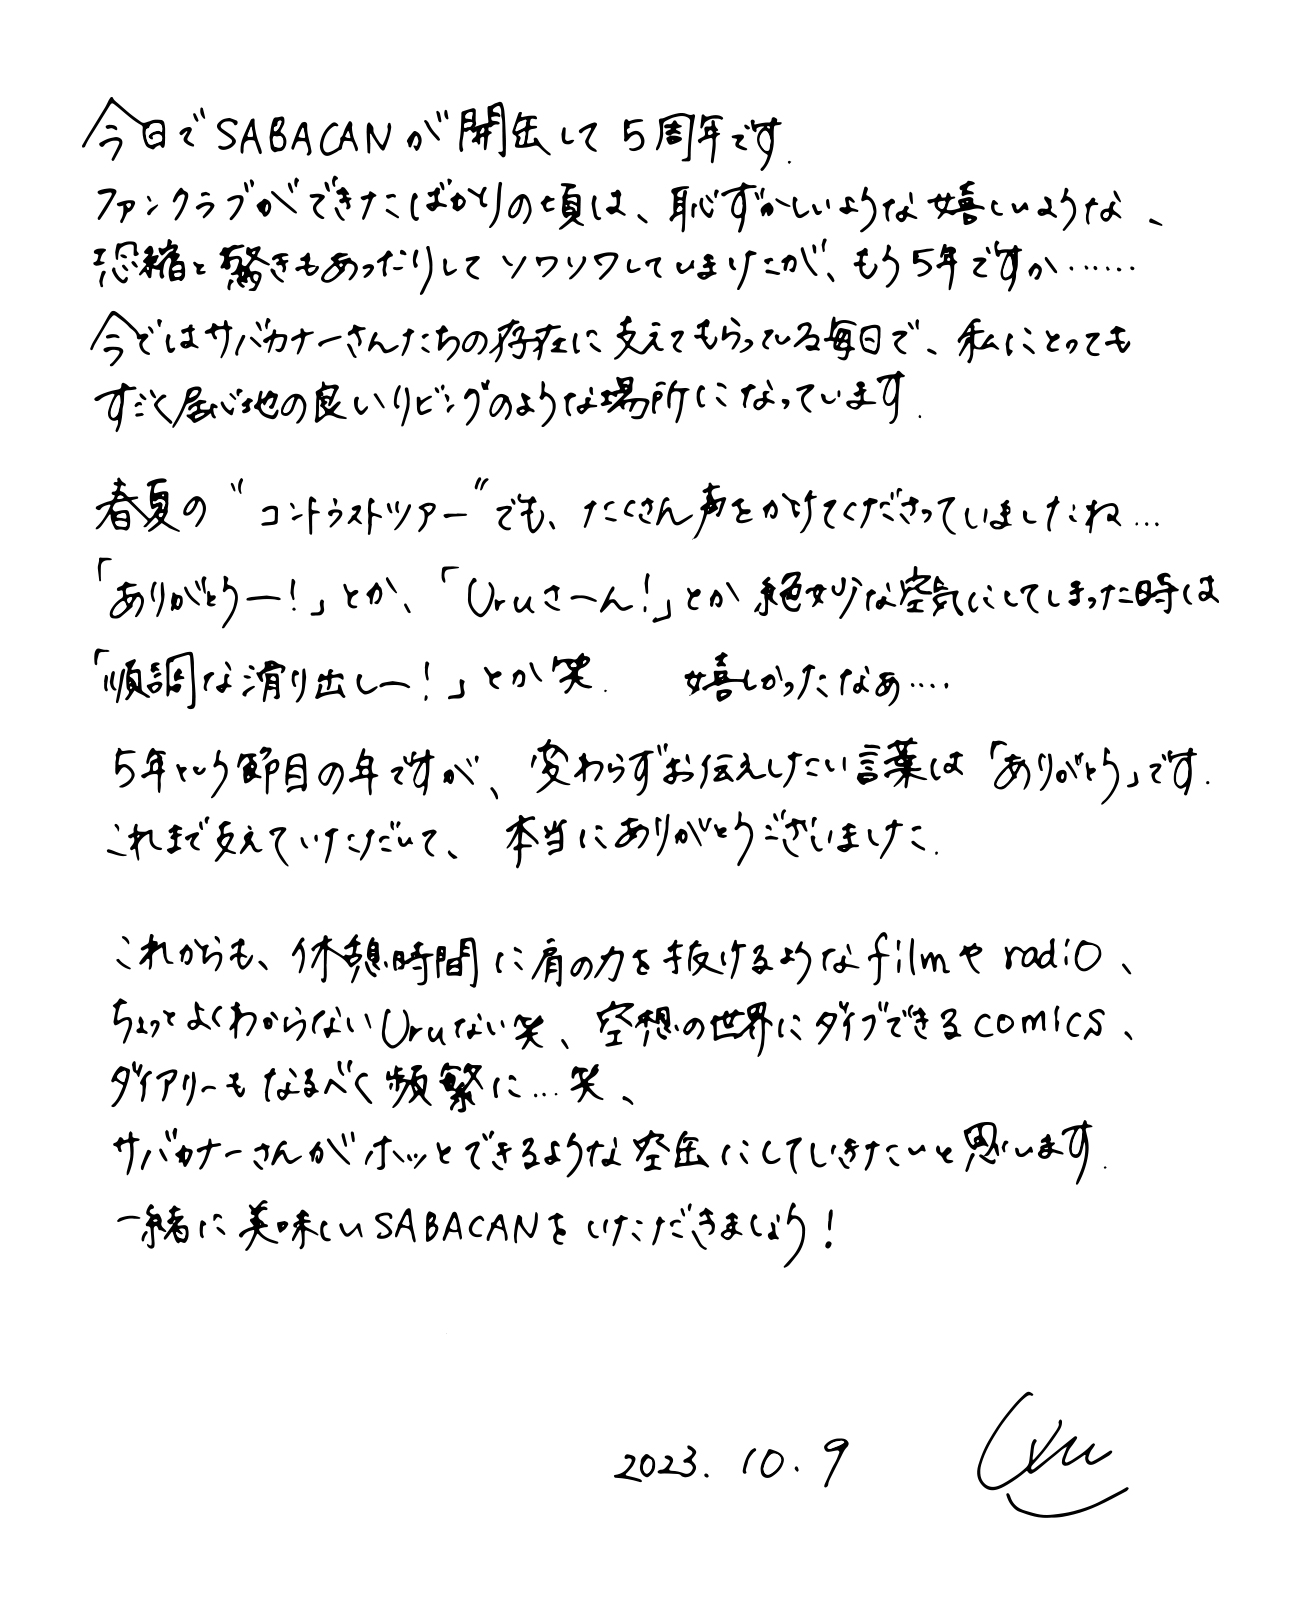 今日でSABACANが開缶して5周年です.
ファンクラブができたばかりの頃は、恥ずかしいような嬉しいような、
恐縮と驚きもあったりしてソワソワしていましたが、もう5年ですか……
今ではサバカナーさんたちの存在に支えてもらっている毎日で、私にとっても
すごく居心地の良いリビングのような場所になっています.
春夏の"コントラストツアー"でも、たくさん声をかけてくださっていましたね…
「ありがとうー!」とか、「Uruさーん!」とか絶妙な空気にしてしまった時は
「順調な滑り出しー!」とか笑. 嬉しかったなぁ….
5年という節目の年ですが、変わらずお伝えしたい言葉は「ありがとう」です.
これまで支えていただいて、本当にありがとうございました.
これからも、休憩時間に肩の力を抜けるようなfilmやradio、
ちょっとよくわからないUruない笑、空想の世界にダイブできるcomics、
ダイアリーもなるべく頻繁に…笑、
サバカナーさんがホッとできるような空缶にしていきたいと思います.
一緒に美味しいSABACANをいただきましょう!
2023.10.9 Uru